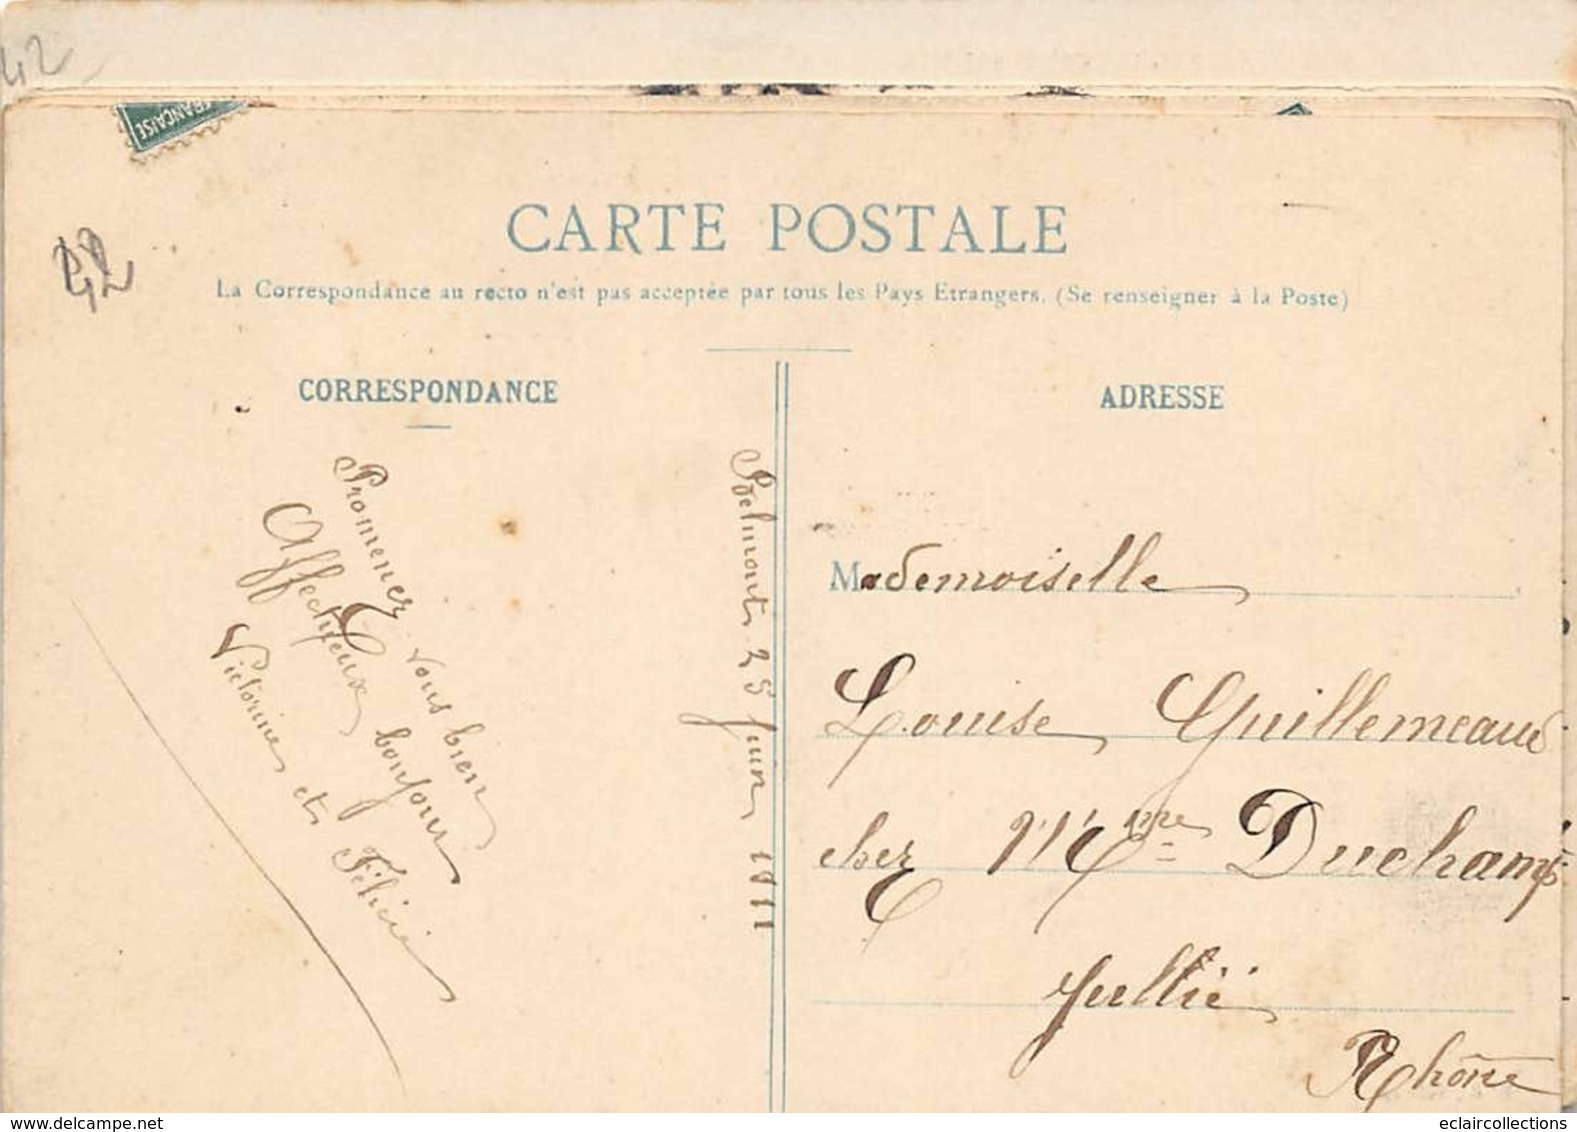 42
FRANÇAISE
42
CARTE POSTALE
La Correspondance au recto n'est pas acceptée par tous les Pays Etrangers. (Se renseigner à la Poste)
CORRESPONDANCE
Promenez vous bien
Affectueux bonjour
Victorine et Félicie
Belmont 25 Juin 1911
ADRESSE
Mademoiselle
Louise Guillemeaud
chez Mme Duchamp
Jullié
Rhône
eclaircollections
www.delcampe.net